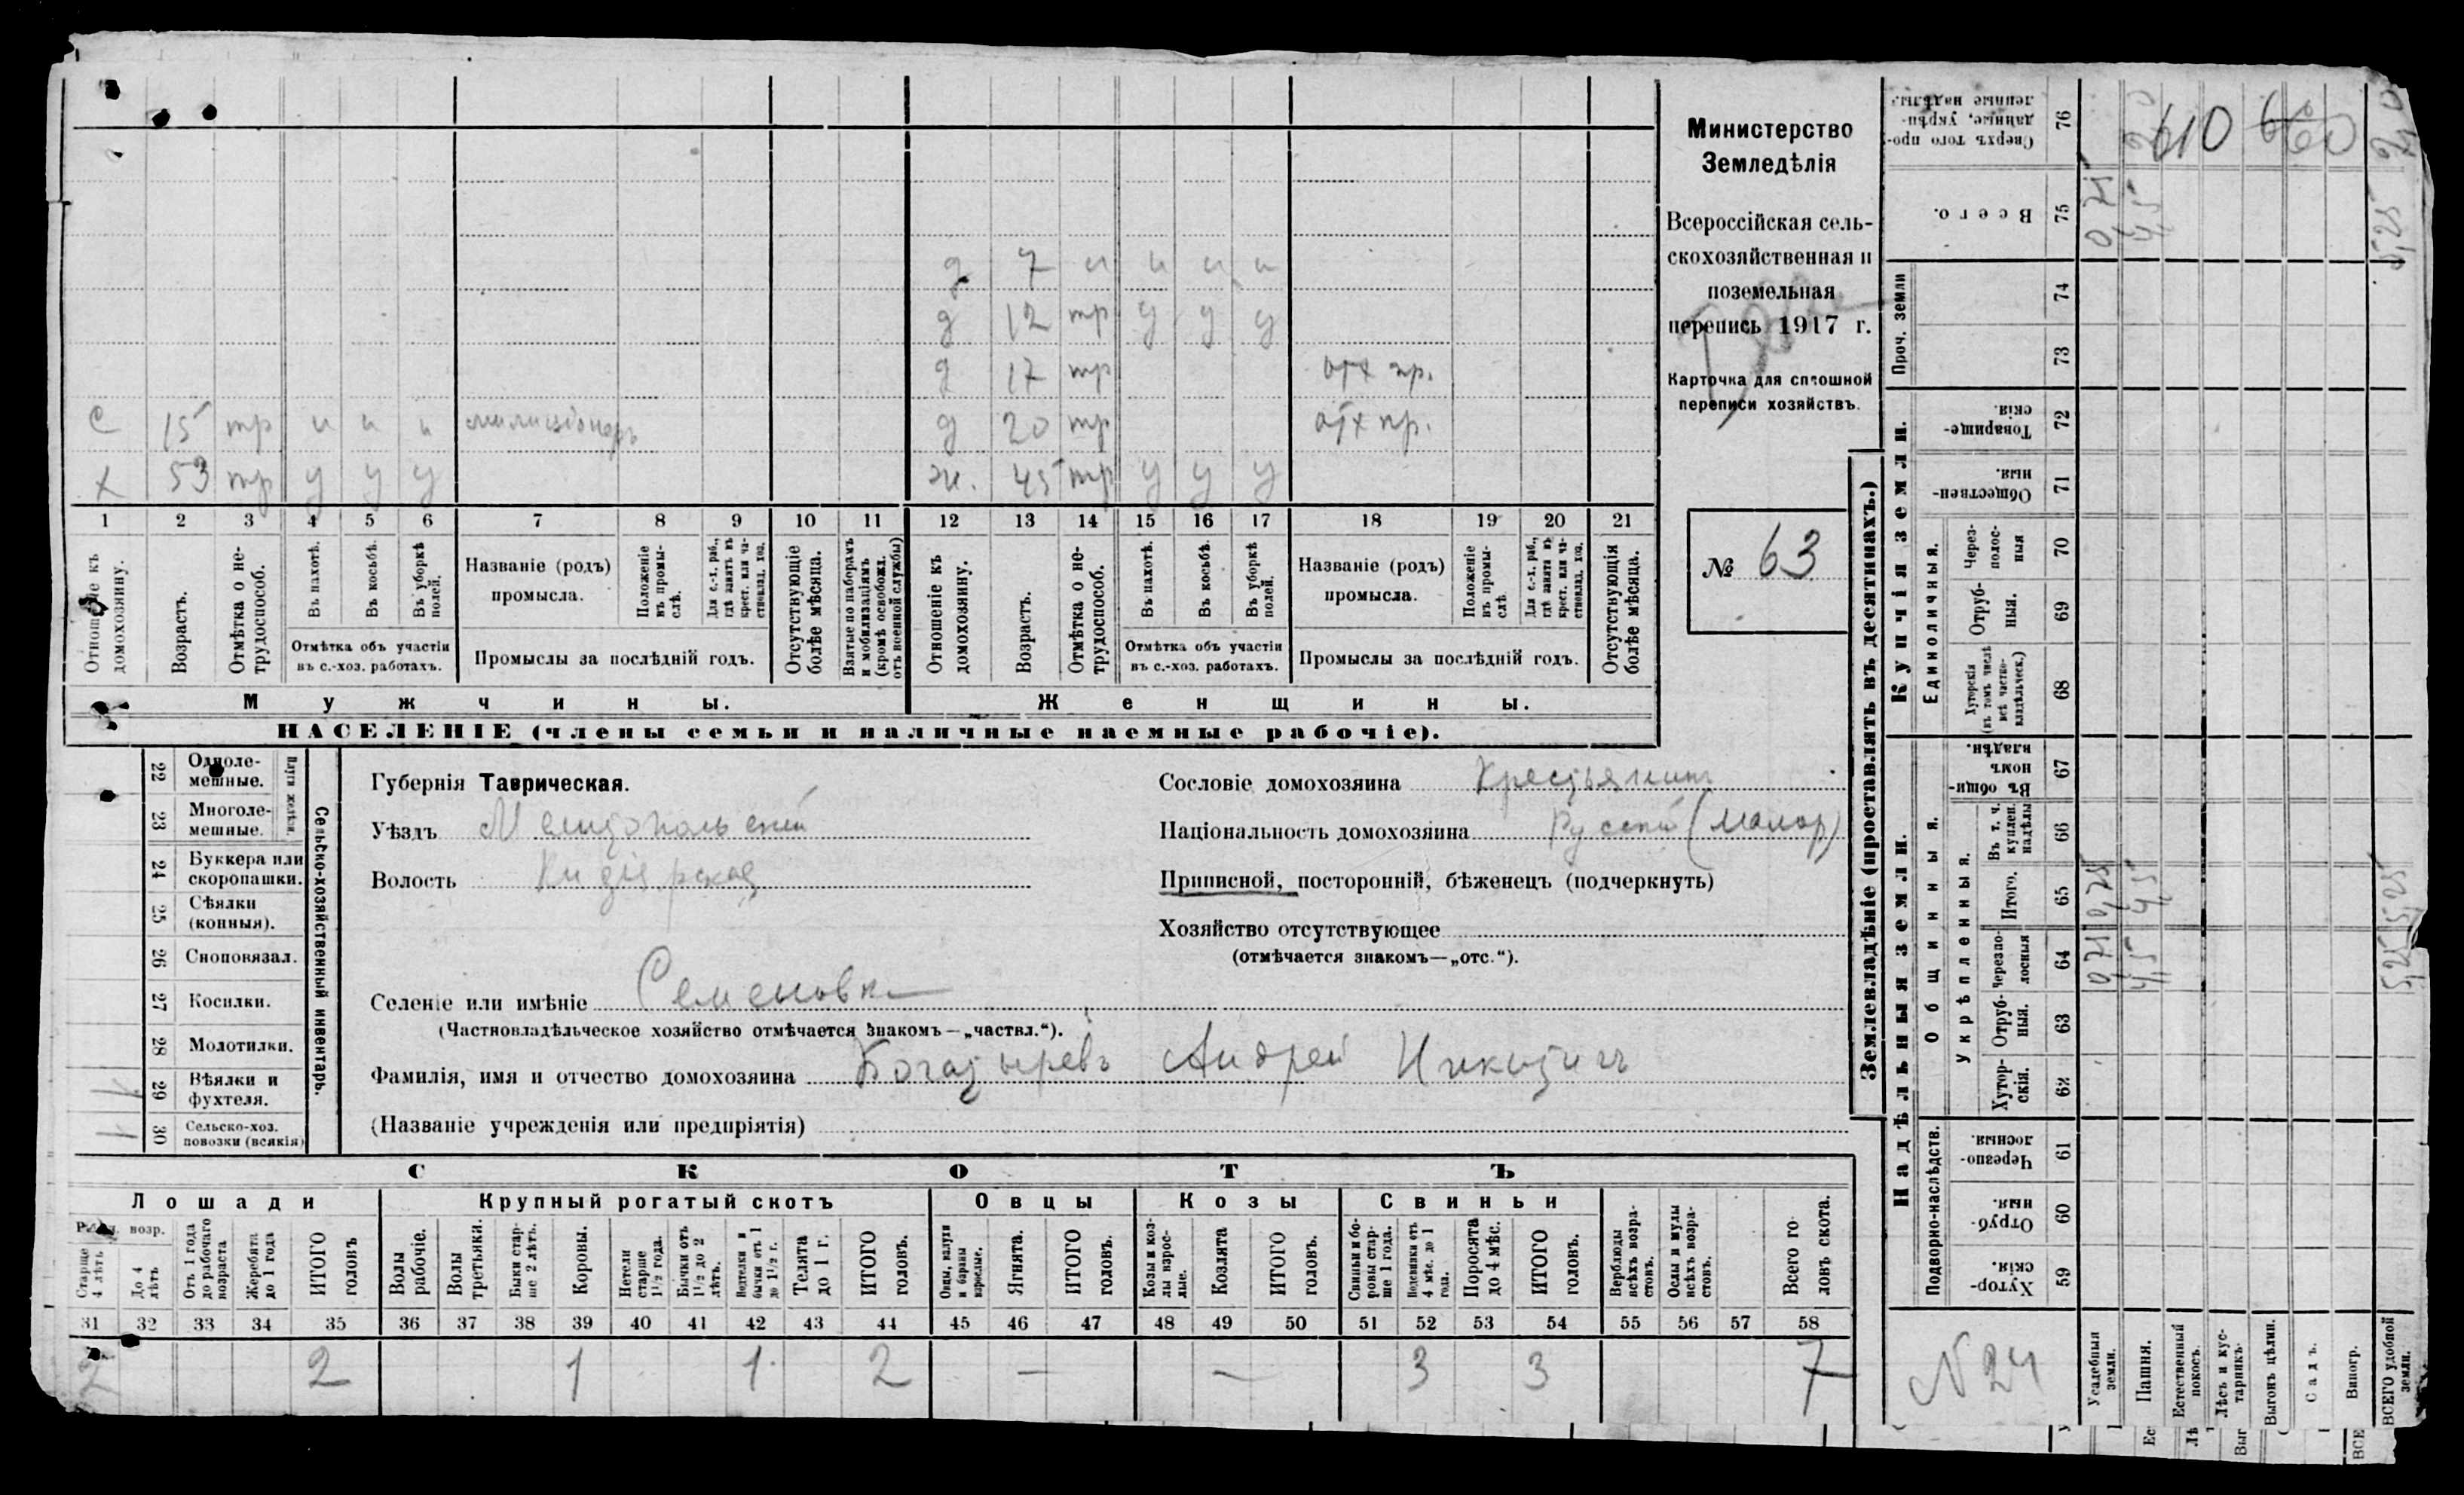 с 15 тр н н н милиціонеръ
х 53 тр у у у
д 7 н н н н
д 12 тр у у у
д 17 тр отх пр.
д 20 тр отх пр.
ж. 45 тр у у у
1 2 3 4 5 6 7 8 9 10 11 12 13 14 15 16 17 18 19 20 21
Отношеніе къ домохозяину.
Возрастъ.
Отмѣтка о нетрудоспособ.
Въ пахотѣ.
Въ косьбѣ.
Въ уборкѣ полей.
Отмѣтка объ участіи
въ с.-хоз. работахъ.
Названіе (родъ)
промысла.
Положеніе въ промыслѣ.
Для с.-х. раб., гдѣ занятъ въ крест. или частновлад. хоз.
Промыслы за послѣдній годъ.
Отсутствующіе болѣе мѣсяца.
Взятые по наборамъ и мобилизаціямъ (кромѣ освобожд. отъ военной службы)
Отношеніе къ домохозяину.
Возрастъ.
Отмѣтка о нетрудоспособ.
Въ пахотѣ.
Въ косьбѣ.
Въ уборкѣ полей.
Отмѣтка объ участіи
въ с.-хоз. работахъ.
Названіе (родъ)
промысла.
Положеніе въ промыслѣ.
Для с.-х. раб., гдѣ занята въ крест. или частновлад. хоз.
Промыслы за послѣдній годъ.
Отсутствующія болѣе мѣсяца.
Мужчины.
Женщины.
НАСЕЛЕНІЕ (члены семьи и наличные наемные рабочіе).
Министерство
Земледѣлія
Всероссійская сель-
скохозяйственная и
поземельная
перепись 1917 г.
Карточка для сплошной
переписи хозяйствъ.
№ 63
22 Одноле-
мешные.
23 Многоле-
мешные.
Плуги желѣзн.
24 Буккера или
скоропашки.
25 Сѣялки
(конныя).
26 Сноповязал.
27 Косилки.
28 Молотилки.
29 Вѣялки и
фухтеля.
30 Сельско-хоз.
повозки (всякія)
Сельско-хозяйственный инвентарь.
Губернія Таврическая.
Уѣздъ Мелитопольскій
Волость
Селеніе или имѣніе Семеновка
(Частновладѣльческое хозяйство отмѣчается знакомъ—„частвл.“).
Фамилія, имя и отчество домохозяина Богатыревъ Андрей Никитичъ
(Названіе учрежденія или предпріятія)
Сословіе домохозяина Крестьянинъ
Національность домохозяина Русскій (малор)
Приписной, посторонній, бѣженецъ (подчеркнуть)
Хозяйство отсутствующее
(отмѣчается знакомъ—„отс.“).
СКОТЪ
Лошади
Крупный рогатый скотъ
Овцы
Козы
Свиньи
Старше 4 лѣтъ
До 4 лѣтъ
Отъ 1 года до рабочаго возраста
Жеребята до 1 года
ИТОГО головъ
Волы рабочіе.
Волы третьяки.
Быки старше 2 лѣтъ.
Коровы.
Нетели старше 1½ года.
Бычки отъ 1½ до 2 лѣтъ.
бычки отъ 1 до 1½ г.
Телята до 1 г.
ИТОГО головъ.
Овцы, валухи и бараны взрослые.
Ягнята.
ИТОГО головъ.
Козы и козлы взрослые.
Козлята
ИТОГО головъ.
Свиньи и боровы старше 1 года.
Подсвинки отъ 4 мѣс. до 1 года.
Поросята до 4 мѣс.
ИТОГО головъ.
Верблюды всѣхъ возрастовъ.
Ослы и мулы всѣхъ возрастовъ.
Всего головъ скота.
31 32 33 34 35 36 37 38 39 40 41 42 43 44 45 46 47 48 49 50 51 52 53 54 55 56 57 58
2 2 1 1 2 — — 3 3 7
Землевладѣніе (проставлять въ десятинахъ.)
Купчія земли.
Проч. земли
Единоличныя.
Надѣльныя земли.
Общинныя.
Укрѣпленныя.
Подворно-наслѣдств.
76 Сверхъ того проданныя, укрѣпленные надѣлы. 610 660
75 Всего.
74
73
72 Товарищескія.
71 Общественныя
70 Черезполосныя
69 Отрубныя.
68 Хуторскія (въ томъ числѣ всѣ частновладѣльческ.)
67 Въ общинномъ владѣн.
66 Въ т. ч. куплен. надѣлы
65 Итого.
64 Черезполосныя
63 Отрубныя.
62 Хуторскія.
61 Черезполосныя.
60 Отрубныя.
59 Хуторскія.
N 24
Усадебныя земли.
Пашня.
Естественный покосъ.
Лѣсъ и кустарникъ.
Выгонъ цѣлин.
Садъ.
Виногр.
ВСЕГО удобной земли.